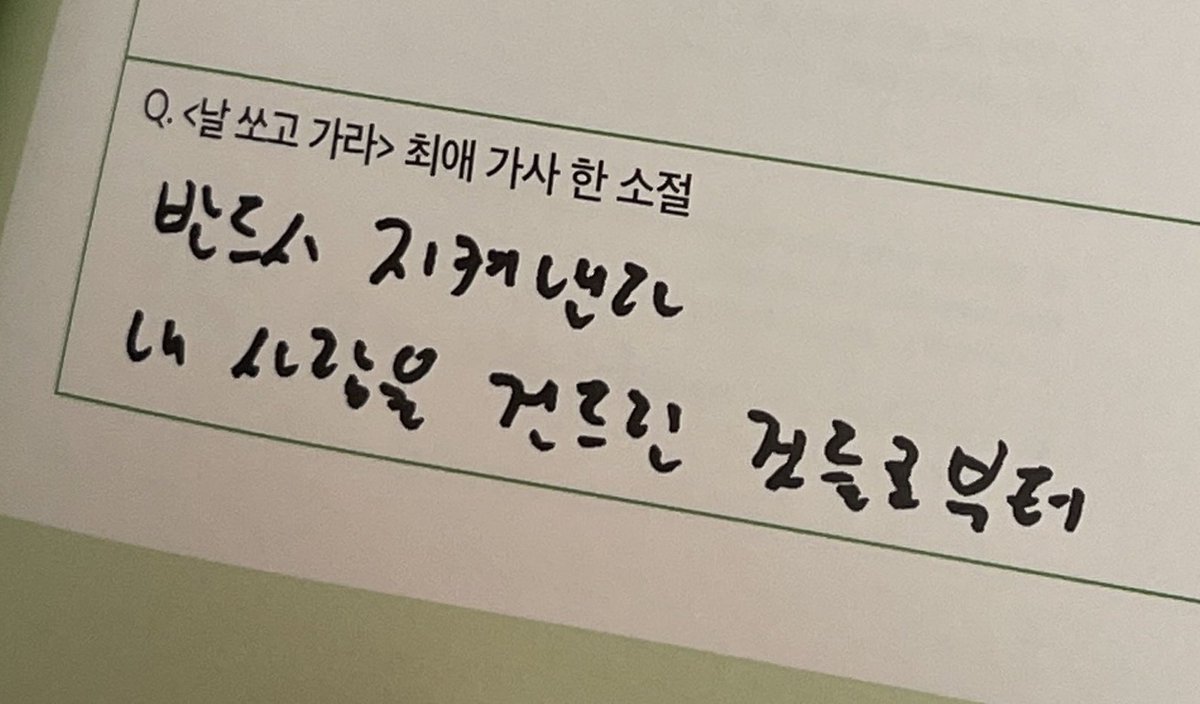 Q. <날 쏘고 가라> 최애 가사 한 소절
반드시 지켜낸다
내 사람을 건드린 것들로부터